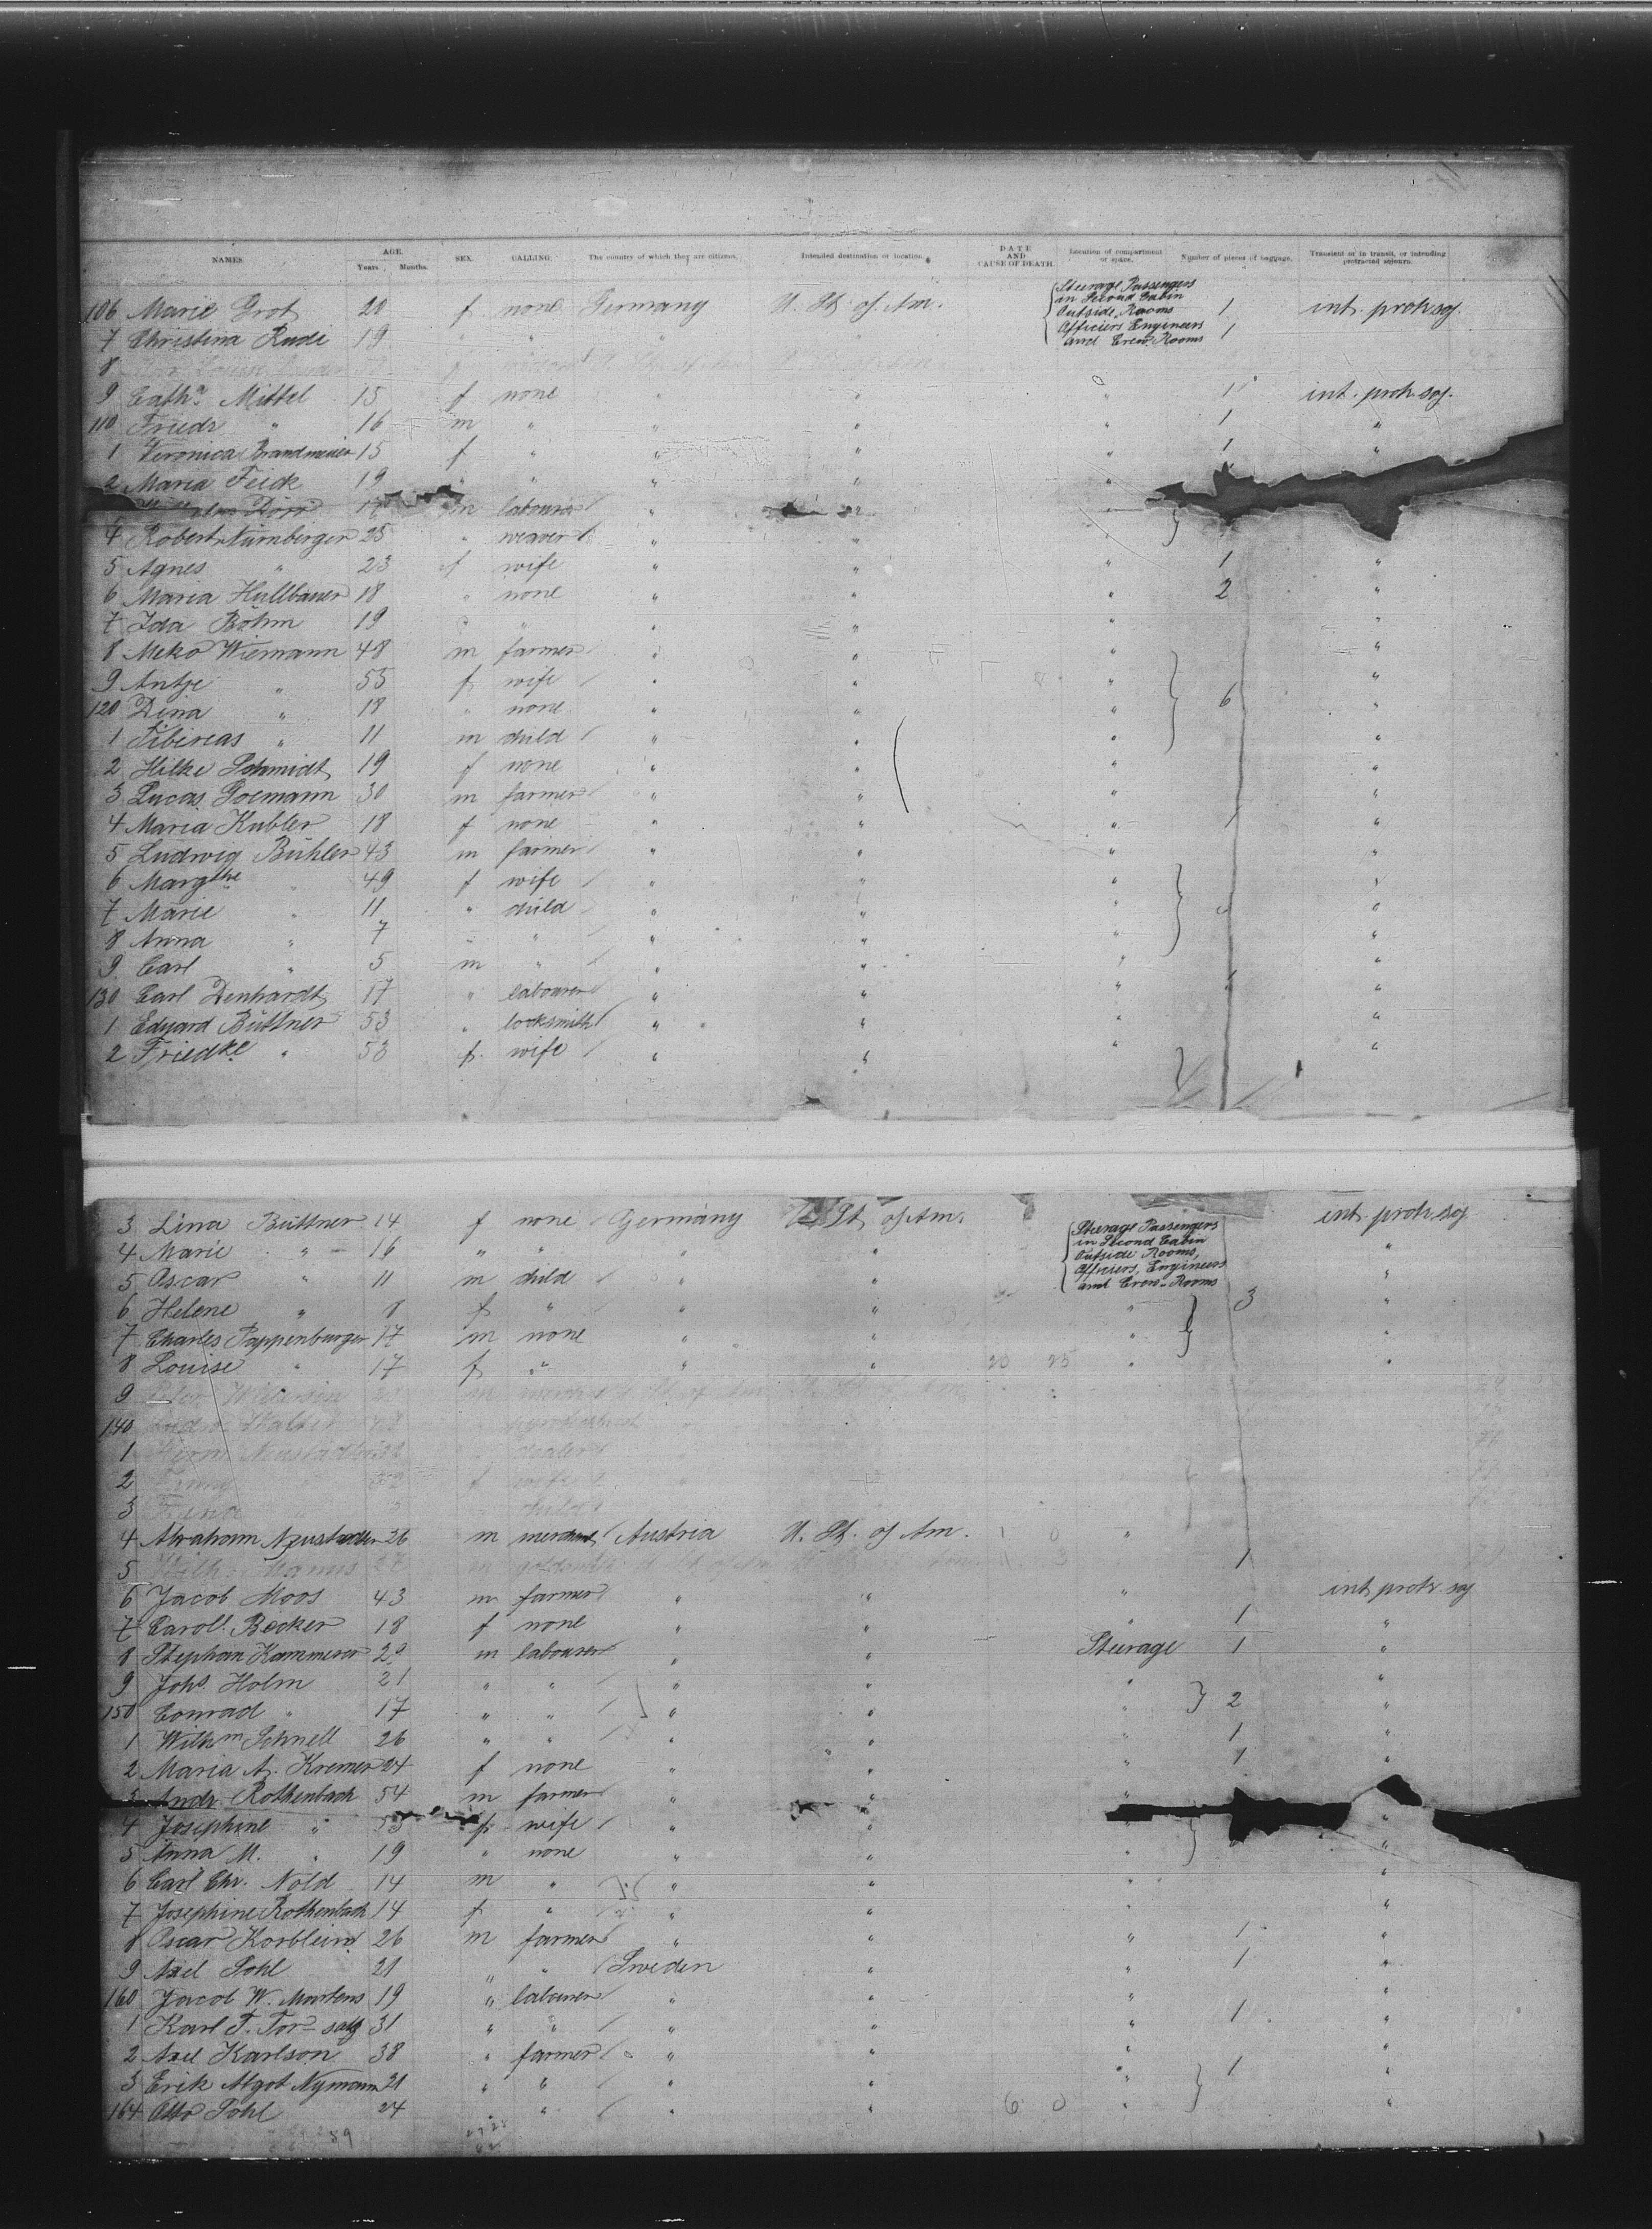 NAMES. AGE. Years. Months. SEX. CALLING. The country of which they are citizens. Intended destination or location. DATE AND CAUSE OF DEATH Location of compartment or space. Number of pieces of baggage. Transient or in transit, or intending protracted sojourn.
106 Marie Grot 20 f none Germany U. St. of Am. Steerage Passengers in Second Cabin Outside Rooms Officiers Engineers and Crew Rooms 1 int. protr. soj.
7 Christina Rudi 19 " " " " 1
8
9 Cath.a Mittel 15 f none " " " 1 int. protr. soj.
110 Friedr " 16 m " " " " 1 "
1 Veronica Brandmeier 15 f " " " " 1 "
2 Maria Feick 19 " " " " "
Dörr m labourer " "
4 Robert Nürnberger 25 " weaver " "
5 Agnes " 23 f wife " " " 1 "
6 Maria Hüllbauer 18 " none " " " 2 "
7 Ida Böhm 19 " " " " " "
8 Meko Wiemann 48 m farmer " " " "
9 Antje " 55 f wife " " " "
120 Dina " 18 " none " " " 6 "
1 Tibireas " 11 m child " " " "
2 Hilke Schmidt 19 f none " " " "
3 Lucas Goemann 30 m farmer " " " "
4 Maria Kubler 18 f none " " " 1 "
5 Ludwig Bühler 43 m farmer " " "
6 Margthe " 49 f wife " " " "
7 Marie " 11 " child " " " "
8 Anna " 7 " " " " " "
9 Carl " 5 m " " " " "
130 Carl Denhardt 17 " labourer " " " 1 "
1 Eduard Büttner 53 " locksmith " " " "
2 Friedke " 53 f wife " " " "
3 Lina Büttner 14 f none Germany U. St. of Am. Steerage Passengers in Second Cabin Outside Rooms, Officiers, Engineers and Crew-Rooms int. protr. soj
4 Marie " 16 " " " " "
5 Oscar " 11 m child " " "
6 Helene " 8 f " " " " 3 "
7 Charles Pappenburger 17 m none " " " "
8 Louise " 17 f " " " 20 25 " "
9
140
1
2
3
4 Abraham Neustadter 26 m merchant Austria U. St. of Am. 1 0 "
5 1
6 Jacob Moos 43 m farmer " " " int. protr. soj
7 Carol. Becker 18 f none " " " 1 "
8 Stephan Kammerer 29 m labourer " " Steerage 1 "
9 Johs. Holm 21 " " " " " "
150 Conrad " 17 " " " " " 2 "
1 Wilhm Schnell 26 " " " " " 1 "
2 Maria A. Kremer 24 f none " " " 1 "
3 Andr. Rothenbach 54 m farmer " " "
4 Josephine " 53 f wife " " " "
5 Anna M. " 19 " none " " " "
6 Carl Chr. Nold 14 m " " " " "
7 Josephine Rothenbach 14 f " " " " "
8 Oscar Korbleind 26 m farmer " " " 1 "
9 Axel Pohl 21 " " Sweden " " 1 "
160 Jacob W. Martens 19 " labourer " " " "
1 Karl F. Tor 31 " " " " " 1 "
2 Axel Karlson 38 " farmer " " " "
3 Erik Algot Nymann 21 " " " " " 1 "
164 Otto Pohl 24 " " " " 6 0 " "